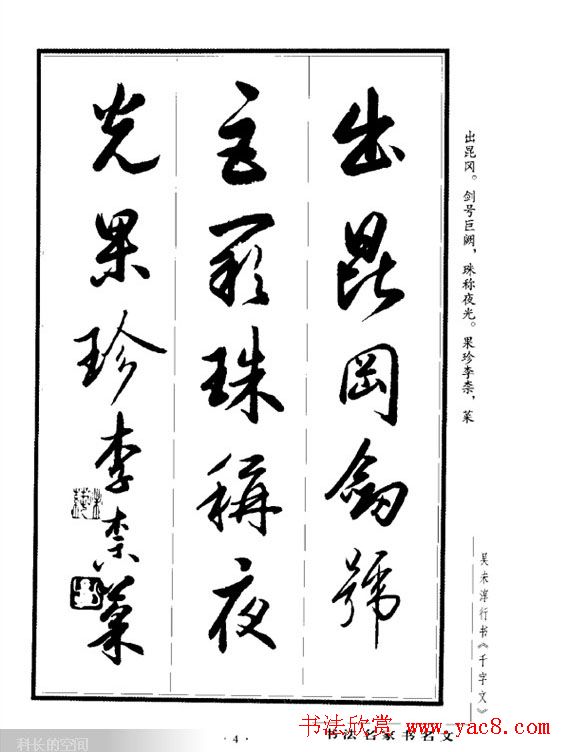 出昆冈。剑号巨阙，珠称夜光。果珍李柰，菜
出昆岡劒號
巨闕珠稱夜
光果珍李柰菜
吴未淳行书《千字文》
科长的空间
·4·
书法名家书名文
书法欣赏 www.yac8.com